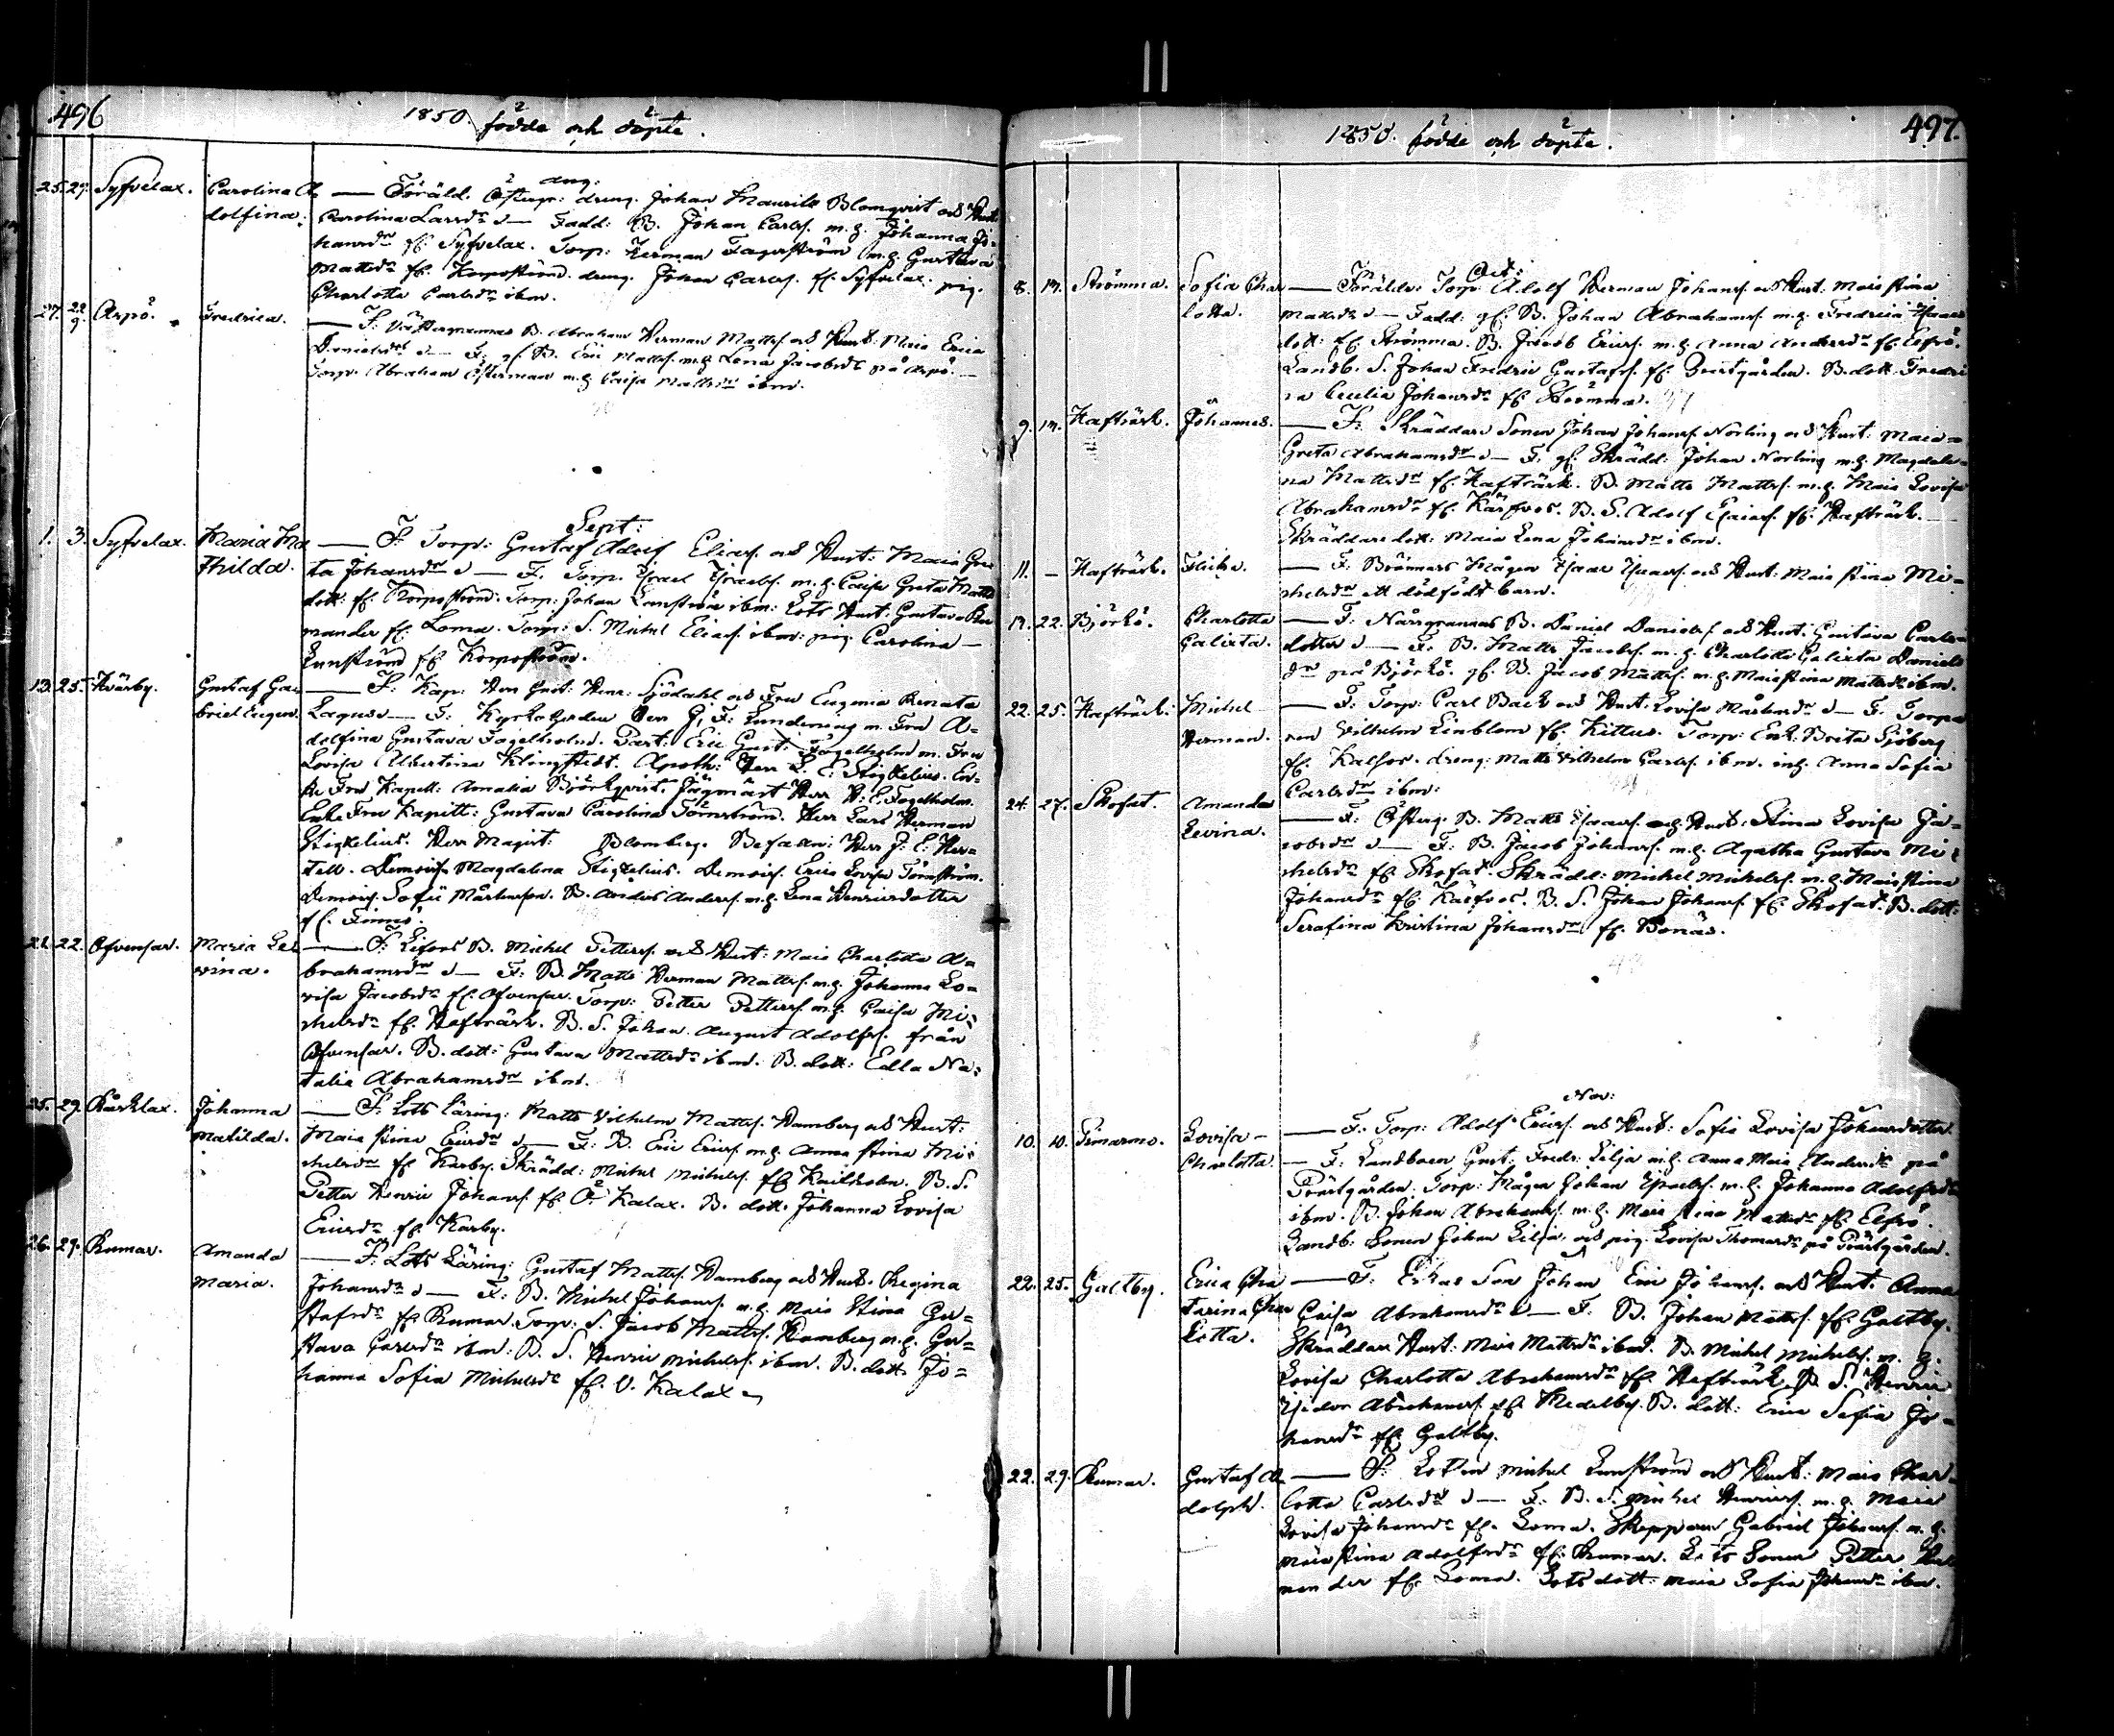 496
1850. födde och döpte.
Aug:
25. 29. Syfvelax. Carolina A — Föräld. Östergr: dräng. Johan Maurits Blomqvist och Hust:
dolfina. Carolina Larsdr d — Fadd: B. Johan Carls. m.h. Johanna Jo-
hansdr fr. Syfvelax. Torp: Herman Fagerström m.h. Gustava
Mattsdr fr. Korpoström. dreng. Johan Carls. fr. Syfvelax. pig.
Charlotta Carlsdr ibm.
27. 29/9. Arpö. Fredrica. — F: Abraham Herman Matts. och Hust: Maia Erica
Danielsdr d — F: gf. B. Eric Matts. m.h. Lena Jacobsdr på Arpö.
Torp. Abraham Österman m.h. Caisa Mattsdr ibm.
Sept:
1. 3. Syfvelax. Maria Ma — F: Torp: Gustaf Adolf Elias. och Hust: Maia Gre
thilda. ta Johansdr d — F. Torp. Israel Israels. m.h. Caisa Greta Matts
dott: fr. Korpoström. Torp: Johan Lunström ibm: Lots Hust: Gustava
mander fr. Loma. Torp: S. Michel Elias. ibm: pig. Carolina —
Lunström fr. Korpoström.
13. 25. Kvärby. Gustaf Ga — F: Kap: Herr Gust: Henr: Sjödahl och Fru Eugenia Renata
briel Eugen. Lagus d — F: Kyrkoherden Herr J. F. Lundening m. Fru A-
dolfina Gustava Fogelholm. Part: Eric Gust: Fogelholm m. Fru
Lovisa Albertina Klingstedt. Apoth: Herr L. E. Stigzelius. En-
ke Fru Kapell: Amalia Björkqvist. Jägmäst Herr H. E. Fogelholm.
Enke Fru Kapitt: Gustava Carolina Törnström. Herr Lars Herman
Stigzelius. Herr Magist: Blomberg. Befallm: Herr J. E. Her-
tell. Demois: Magdalena Stigzelius. Demois. Erica Lovisa Törnström.
Demois. Sofie Mårtenson. B. Anders Anders. m.h. Lena Henricsdotter
fr. Finnö.
21. 22. Ofvensar. Maria Le — F: Lifers B. Michel Petters. och Hust: Maia Charlotta A-
vina. brahamsdr d — F: B. Matts Herman Matts. m.h. Johanna Lo-
visa Jacobsdr fr. Ofvensar. Torp: Petter Petters. m.h. Caisa Mi-
chelsdr fr. Hafträsk. B. S. Johan August Adolfs. från
Ofvensar. B. dott: Gustava Mattsdr ibm. B. dott: Edla Na-
talia Abrahamsdr ibm.
25. 29. Rårklax. Johanna — F: Lots Läring: Matts Vilhelm Matts. Hamberg och Hust:
Matilda. Maia Stina Ericsdr d — F: B. Eric Erics. m.h. Anna Stina Mi-
chelsdr fr. Karby. Skrädd: Michel Michels. fr. Kailholm. B. S.
Petter Henric Johans. fr. Ö. Kalax. B. dott. Johanna Lovisa
Ericsdr fr. Karby.
26. 29. Rumar. Amanda — F: Lots Läring: Gustaf Matts. Hamberg och Hust. Regina
Maria. Johansdr d — F: B. Michel Johans. m.h. Maia Stina Gu-
stafsdr fr. Rumar. Torp: S. Jacob Matts. Hamberg m.h. Gus-
stava Carlsdr ibm: B. S. Henric Michels. ibm. B. dott. Jo-
hanna Sofia Michelsdr fr. V. Kalax.
497.
1850. födde och döpte.
Oct:
8. 13. Strömma. Sofia Char — Föräldr: Torp: Adolf Herman Johans. och Hust: Maia Stina
lotta. Mattsdr d — Fadd: gf. B. Johan Abrahams. m.h. Fredrica Isaacs
dott: fr. Strömma. B. Jacob Erics. m.h. Anna Andersdr fr. Elfsö.
Landb. S. Johan Fredric Gustafs. fr. Prestgården. B. dott. Fredri
ca Cecilia Johansdr fr. Strömma.
9. 13. Hafträsk. Johannes. — F: Skräddare Sonen Johan Johans. Norling och Hust: Maia-
Greta Abrahamsdr d — F. gf. Skrädd: Johan Norling m.h. Magdale-
na Mattsdr fr. Hafträsk. B. Matts Matts. m.h. Maia Lovisa
Abrahamsdr fr. Kärfvos. B. S. Adolf Esaias. fr. Hafträsk.
Skräddare dott: Maia Lena Johansdr ibm.
11. — Hafträsk. Flicka. — F: Brännars Mågen Isaac Isaacs. och Hust: Maia Stina Mi-
chelsdr ett dödfödt barn.
19. 22. Björkö. Charlotta — F: Närsgrannas B. Daniel Daniels. och Hust: Gustava Carls-
Calixta. dotter d — F: B. Matts Jacobs. m.h. Charlotta Calixta Daniels
dr på Björkö. gf. B. Jacob Matts. m.h. Maia Stina Mattsdr ibm.
22. 25. Hafträsk. Michel — F: Torp: Carl Back och Hust: Lovisa Mårtensdr d — F. Torpa
Herman. ren Vilhelm Linblom fr. Kittus. Torp: Enk: Brita Sjöberg
fr. Kalfor. dreng: Matts Vilhelm Carls. ibm. inh. Anna Sofia
Carlsdr ibm:
24. 27. Skofat. Amanda — F: Österg. B. Matts Isaacs. och Hust: Stina Lovisa Ja-
Levina. cobsdr d — F: B. Jacob Johans. m.h. Agatha Gustava Mi-
chelsdr fr. Skofat. Skrädd: Michel Michels. m.h. Maia Stina
Johansdr fr. Kärfvos. B. S. Johan Johans. fr. Skofat. B. dott:
Serafina Kristina Johansdr fr. Bonäs.
Nov:
10. 10. Finarmo. Lovisa — F: Torp: Adolf Erics. och Hust: Sofia Lovisa Johansdotter.
Charlotta. — F: Landboen Gust: Fredr: Lilja m.h. Anna Maia Andersdr på
Prästgården. Torp: Mågen Johan Israels. m.h. Johanna Adolfsdr
ibm. B. Johan Abrahams. m.h. Maia Stina Mattsdr fr. Elfsö.
Landb: Sonen Johan Lilja. och pig. Lovisa Thomasdr på Prästgården.
22. 25. Galtby. Erica Cha — F: Enkas Son Johan Eric Johans. och Hust: Anna
tarina Char Caisa Abrahamsdr d — F. B. Johan Matts. fr. Galtby.
lotta. Skräddare Hust: Maia Mattsdr ibm. B. Michel Michels. m.h.
Lovisa Charlotta Abrahamsdr fr. Hafträsk. B. S. Henric
Isidor Abrahams. fr. Medelby. B. dott: Erica Sofia Jo-
hansdr fr. Galtby.
22. 29. Rumar. Gustaf A — F: Lotsen Michel Lunström och Hust: Maia Char-
dolph. lotta Carlsdr d — F: B. S. Michel Henrics. m.h. Maia
Lovisa Johansdr fr. Loma. Skepparen Gabriel Johans. m.h.
Maia Stina Adolfsdr fr. Rumar. Lots Sonen Petter
mander fr. Loma. Lots dott: Maia Sofia Johansdr ibm.